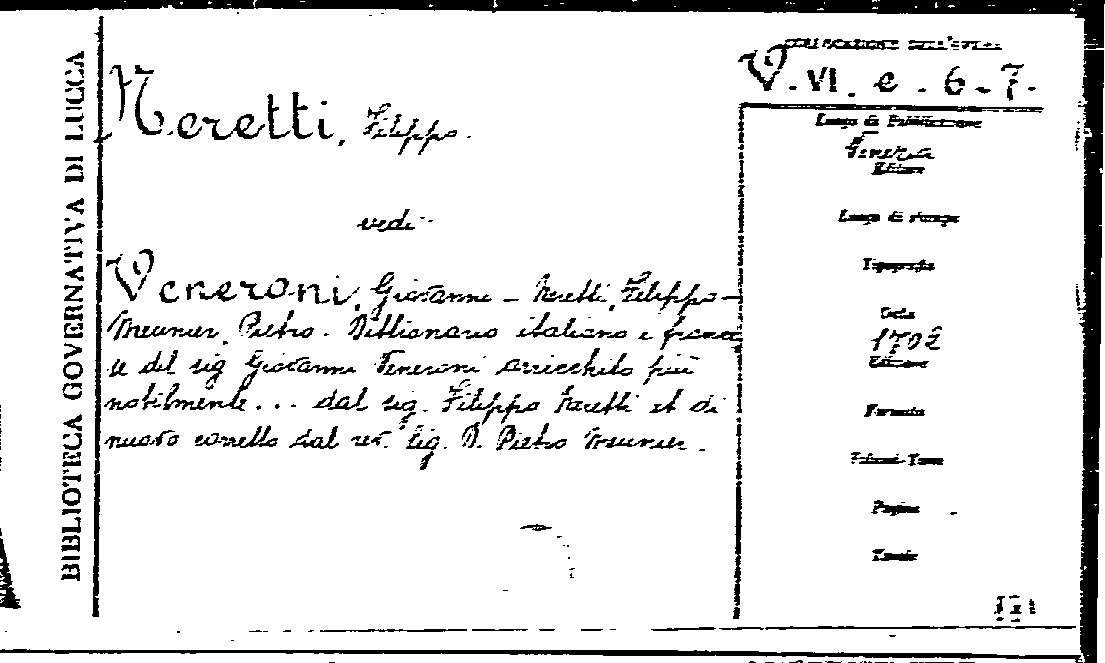 BIBLIOTECA GOVERNATIVA DI LUCCA
COLLOCAZIONE DELL'OPERA
V. VI. e. 6-7.
Neretti, Filippo.
vedi
Veneroni, Giovanni - Neretti, Filippo -
Meunier, Pietro. Dittionario italiano e france
se del sig Giovanni Veneroni arricchito più
nobilmente... dal sig. Filippo Neretti et di
nuovo corretto dal rev. sig. D. Pietro Meunier.
Luogo di Pubblicazione
Venezia
Editore
Luogo di stampa
Tipografia
Data
1702
Edizione
Formato
Volumi-Tomi
Pagine
Tavole